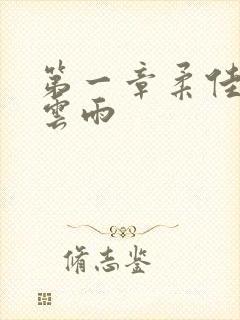 第一章柔佳
雲雨
脩志鉴